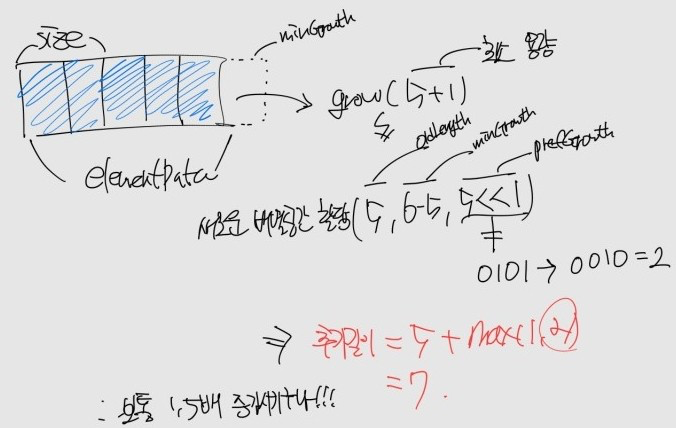 size
minGrowth
최소 용량
grow(5+1)
elementData
oldLength
minGrowth
prefGrowth
새로운 배열길이 할당(5, 6-5, 5<<1)
0101 → 0010 = 2
⇒ 추가길이 = 5 + max(1, 2)
= 7.
∴ 보통 1.5배 증가시키구나!!!